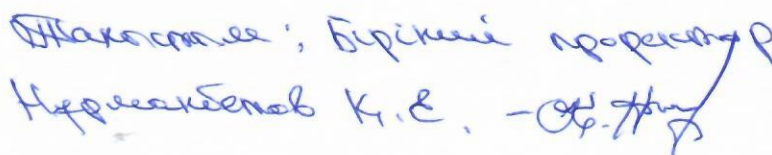 Таныстым: Бірінші проректор
Нурманбетов К.Е. -